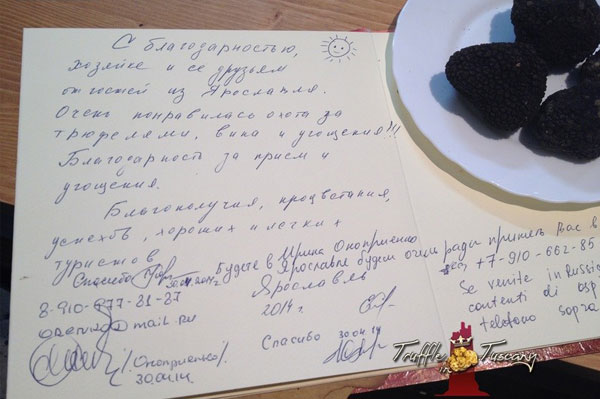 С благодарностью,
хозяйке и её друзьям
от гостей из Ярославля.
Очень понравилась охота за
трюфелями, вина и угощения!!!
Благодарность за прием и
угощения.
Благополучия, процветания,
успехов, хороших и легких
туристов
Спасибо
30.04.2014г.
8-910-677-31-37
@mail.ru
/Оноприенко/
30.04.14
Ирина Оноприенко
Будете в Ярославле будем очень рады принять Вас в
+7-910-662-85
Ярославль
2014г.
Спасибо 30.04.14
Se venite in Russia
contenti di osp
telefono sopra
Truffle in Tuscany